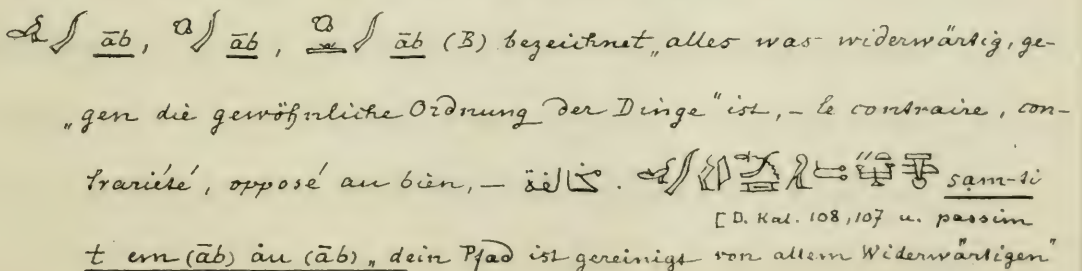 āb, āb, āb (B) bezeichnet „alles was widerwärtig, ge-
„gen die gewöhnliche Ordnung der Dinge" ist, – le contraire, con-
trariété, opposé au bien, – مخالفة. sam-ti
[D. Kal. 108, 107 u. passim
t em (āb) àu (āb) „dein Pfad ist gereinigt von allem Widerwärtigen"